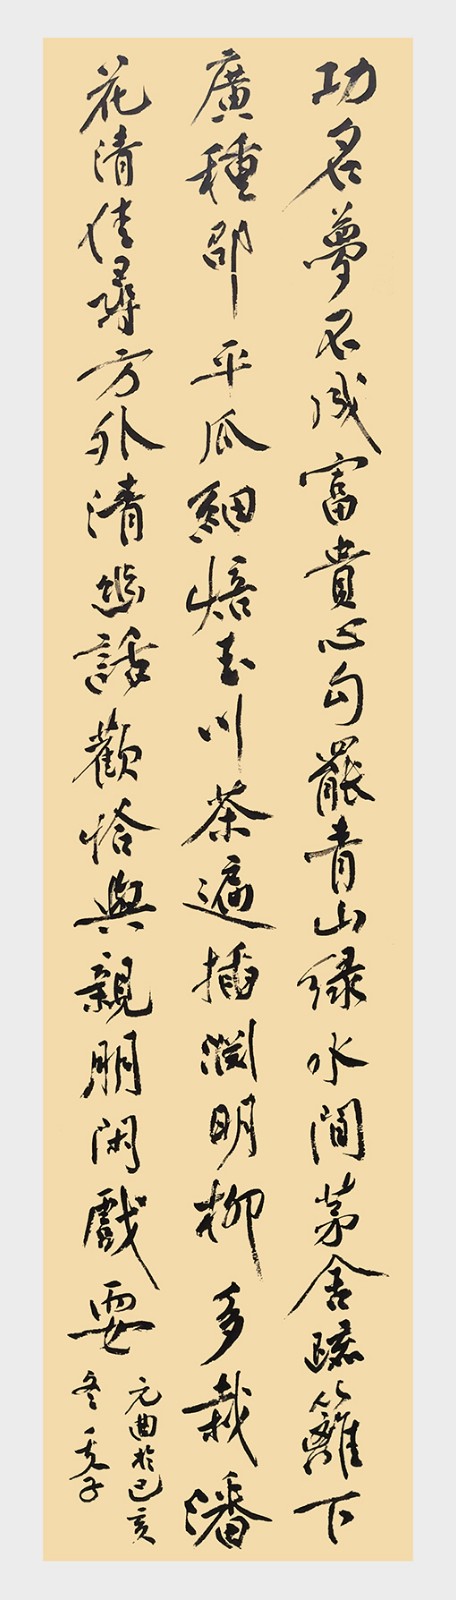 功名夢不成富貴心勾罷青山绿水間茅舍疏籬下
廣種邵平瓜細焙玉川茶遍插淵明柳多栽潘
花清佳尋方外清幽話歡恰與親朋閑戲耍
元曲於己亥
冬子